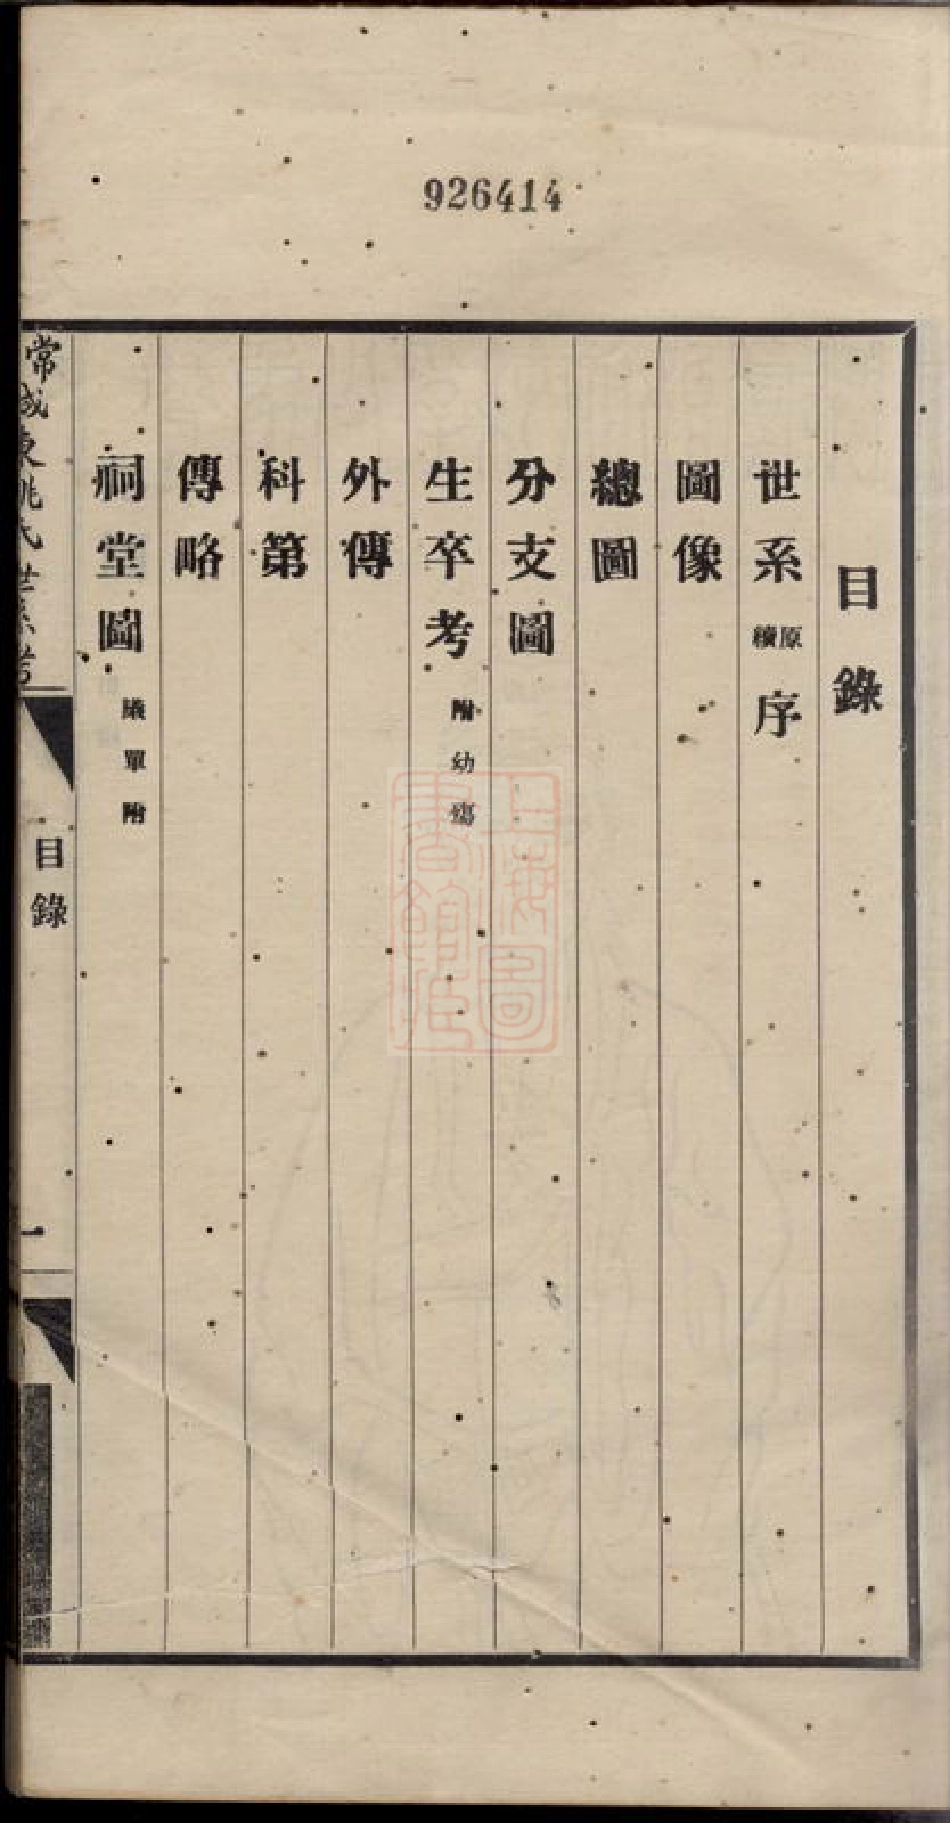 926414
目錄
世系原續序
圖像
總圖
分支圖
生卒考附幼殤
外傳
科第
傳略
祠堂圖議單附
常城東姚氏世系考
目錄
一
上海圖書館藏